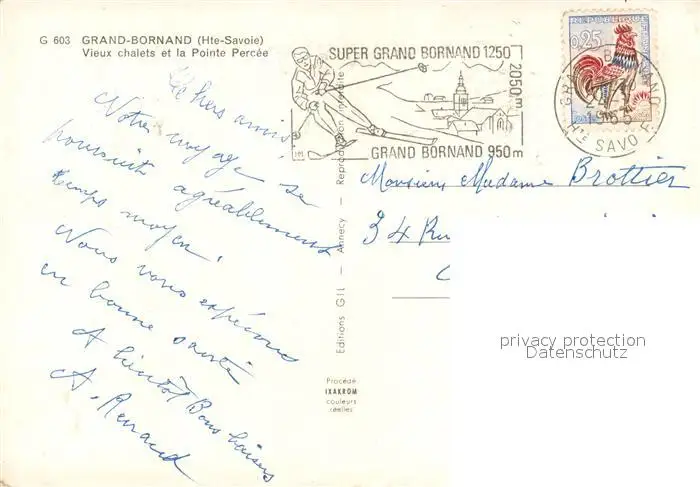 G 603 GRAND-BORNAND (Hte-Savoie)
Vieux chalets et la Pointe Percée
chers amis
Notre voyage se
poursuit agréablement
temps moyen.
Nous vous espérons
en bonne santé
A bientôt Bons baisers
A. Renaud
Editions GIL — Annecy — Reproduction interdite
Procédé
IXAKROM
couleurs
réelles
SUPER GRAND BORNAND 1250
2050 m
GRAND BORNAND 950 m
REPUBLIQUE
0,25
1965
HTE SAVOIE
Monsieur Madame Brottier
34 Ru
privacy protection
Datenschutz